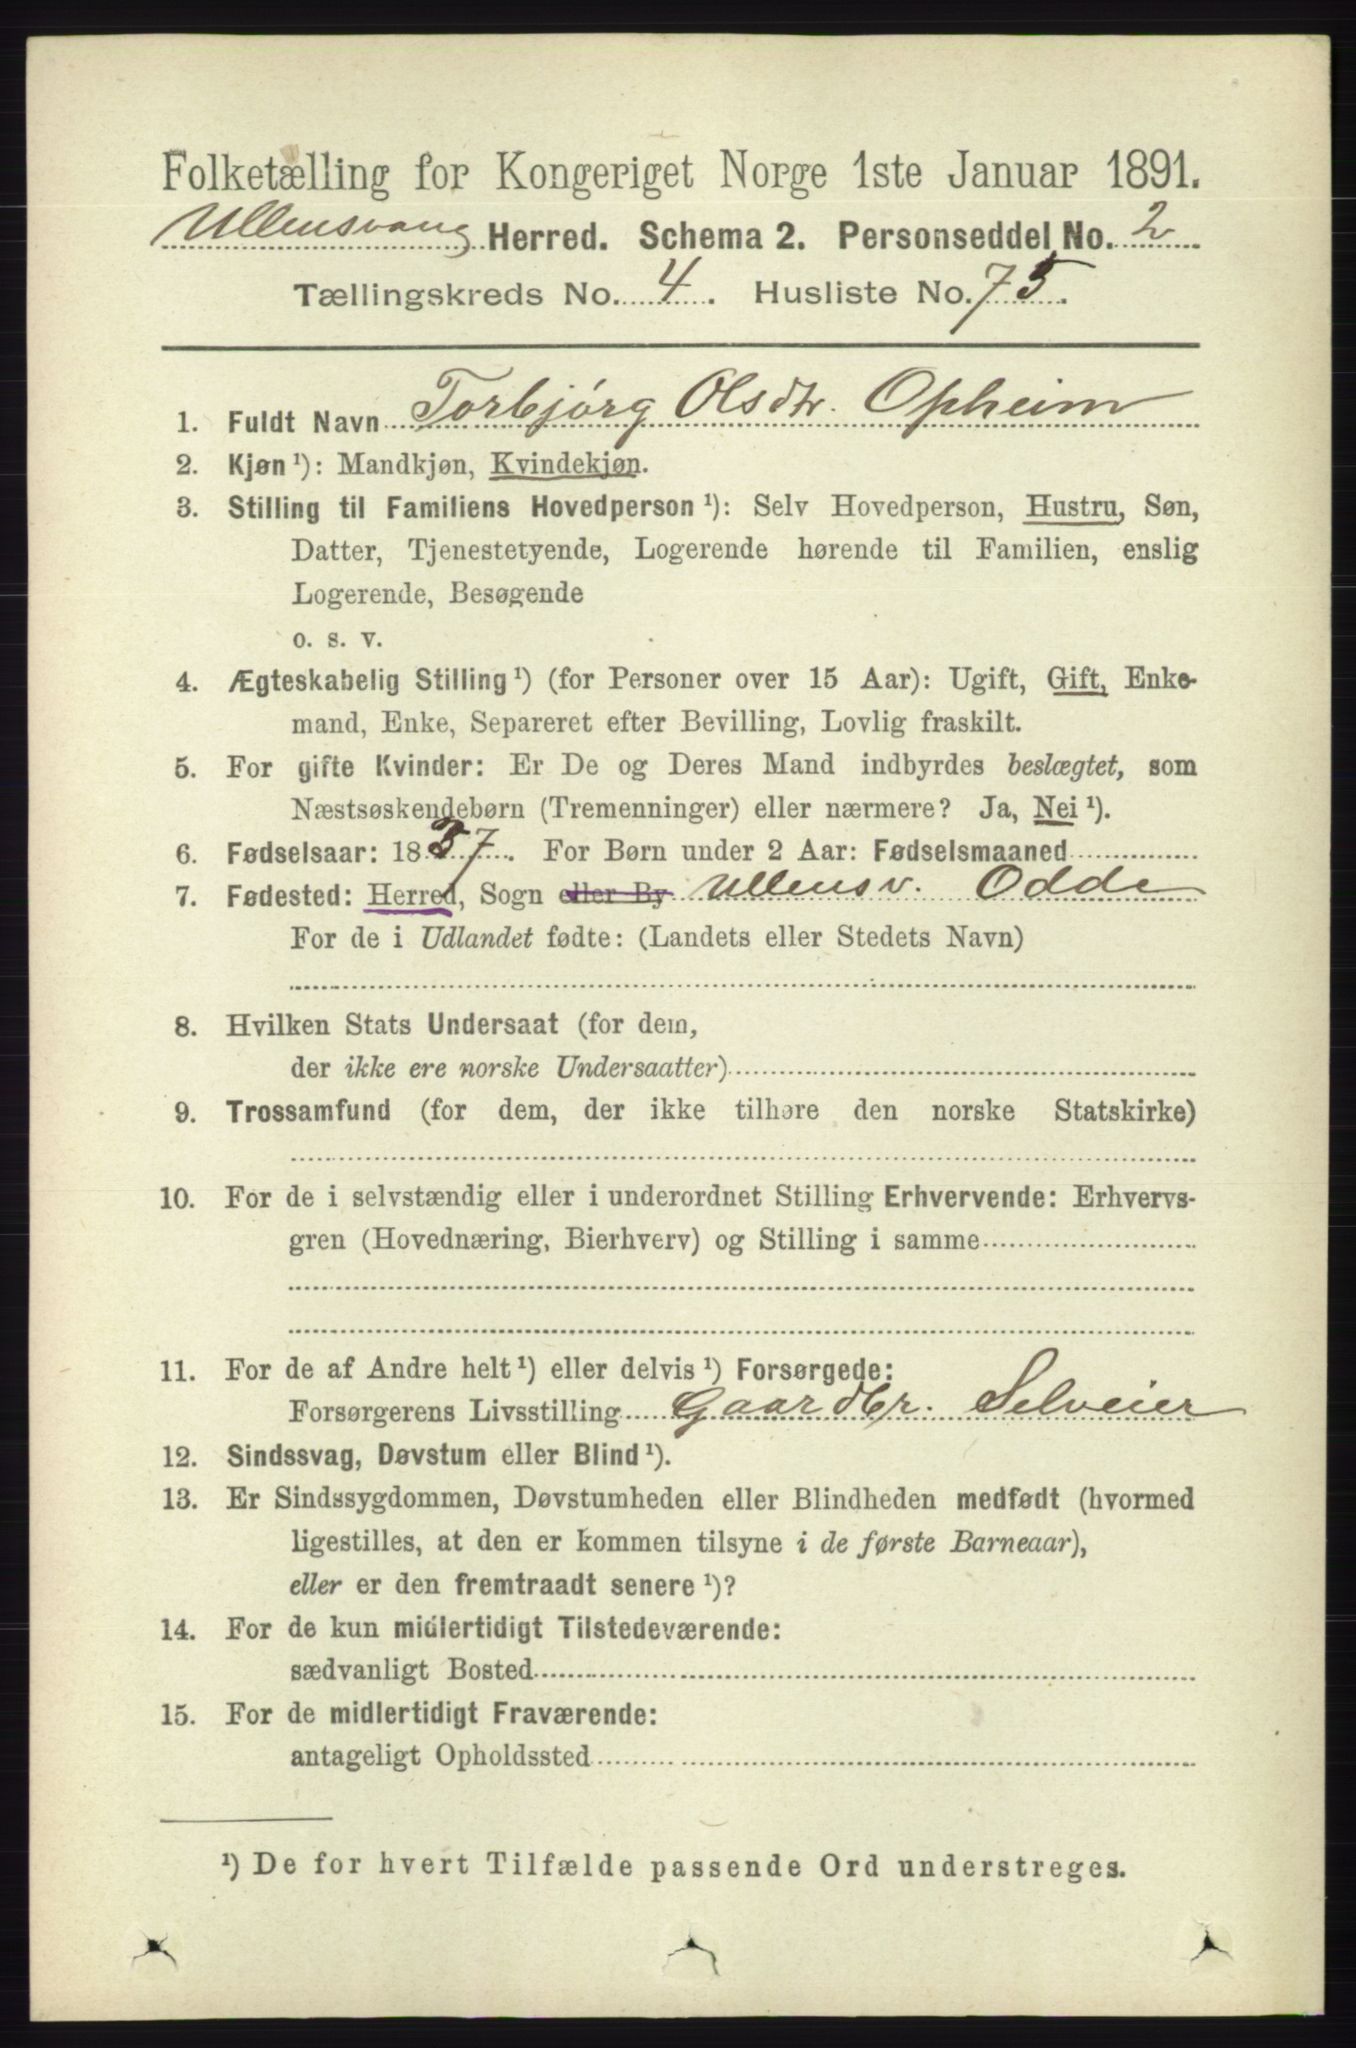 Folketælling for Kongeriget Norge 1ste Januar 1891.
Ullensvang Herred. Schema 2. Personseddel No. 2
Tællingskreds No. 4. Husliste No. 75.
1. Fuldt Navn Torbjørg Olsdtr. Opheim
2. Kjøn ¹): Mandkjøn, Kvindekjøn.
3. Stilling til Familiens Hovedperson ¹): Selv Hovedperson, Hustru, Søn,
Datter, Tjenestetyende, Logerende hørende til Familien, enslig
Logerende, Besøgende
o. s. v.
4. Ægteskabelig Stilling ¹) (for Personer over 15 Aar): Ugift, Gift, Enke-
mand, Enke, Separeret efter Bevilling, Lovlig fraskilt.
5. For gifte Kvinder: Er De og Deres Mand indbyrdes beslægtet, som
Næstsøskendebørn (Tremenninger) eller nærmere? Ja, Nei ¹).
6. Fødselsaar: 1837. For Børn under 2 Aar: Fødselsmaaned
7. Fødested: Herred, Sogn eller By Ullensv. Odde
For de i Udlandet fødte: (Landets eller Stedets Navn)
8. Hvilken Stats Undersaat (for dem,
der ikke ere norske Undersaatter)
9. Trossamfund (for dem, der ikke tilhøre den norske Statskirke)
10. For de i selvstændig eller i underordnet Stilling Erhvervende: Erhvervs-
gren (Hovednæring, Bierhverv) og Stilling i samme
11. For de af Andre helt ¹) eller delvis ¹) Forsørgede:
Forsørgerens Livsstilling Gaardbr. Selveier
12. Sindssvag, Døvstum eller Blind ¹).
13. Er Sindssygdommen, Døvstumheden eller Blindheden medfødt (hvormed
ligestilles, at den er kommen tilsyne i de første Barneaar),
eller er den fremtraadt senere ¹)?
14. For de kun midlertidigt Tilstedeværende:
sædvanligt Bosted
15. For de midlertidigt Fraværende:
antageligt Opholdssted
¹) De for hvert Tilfælde passende Ord understreges.